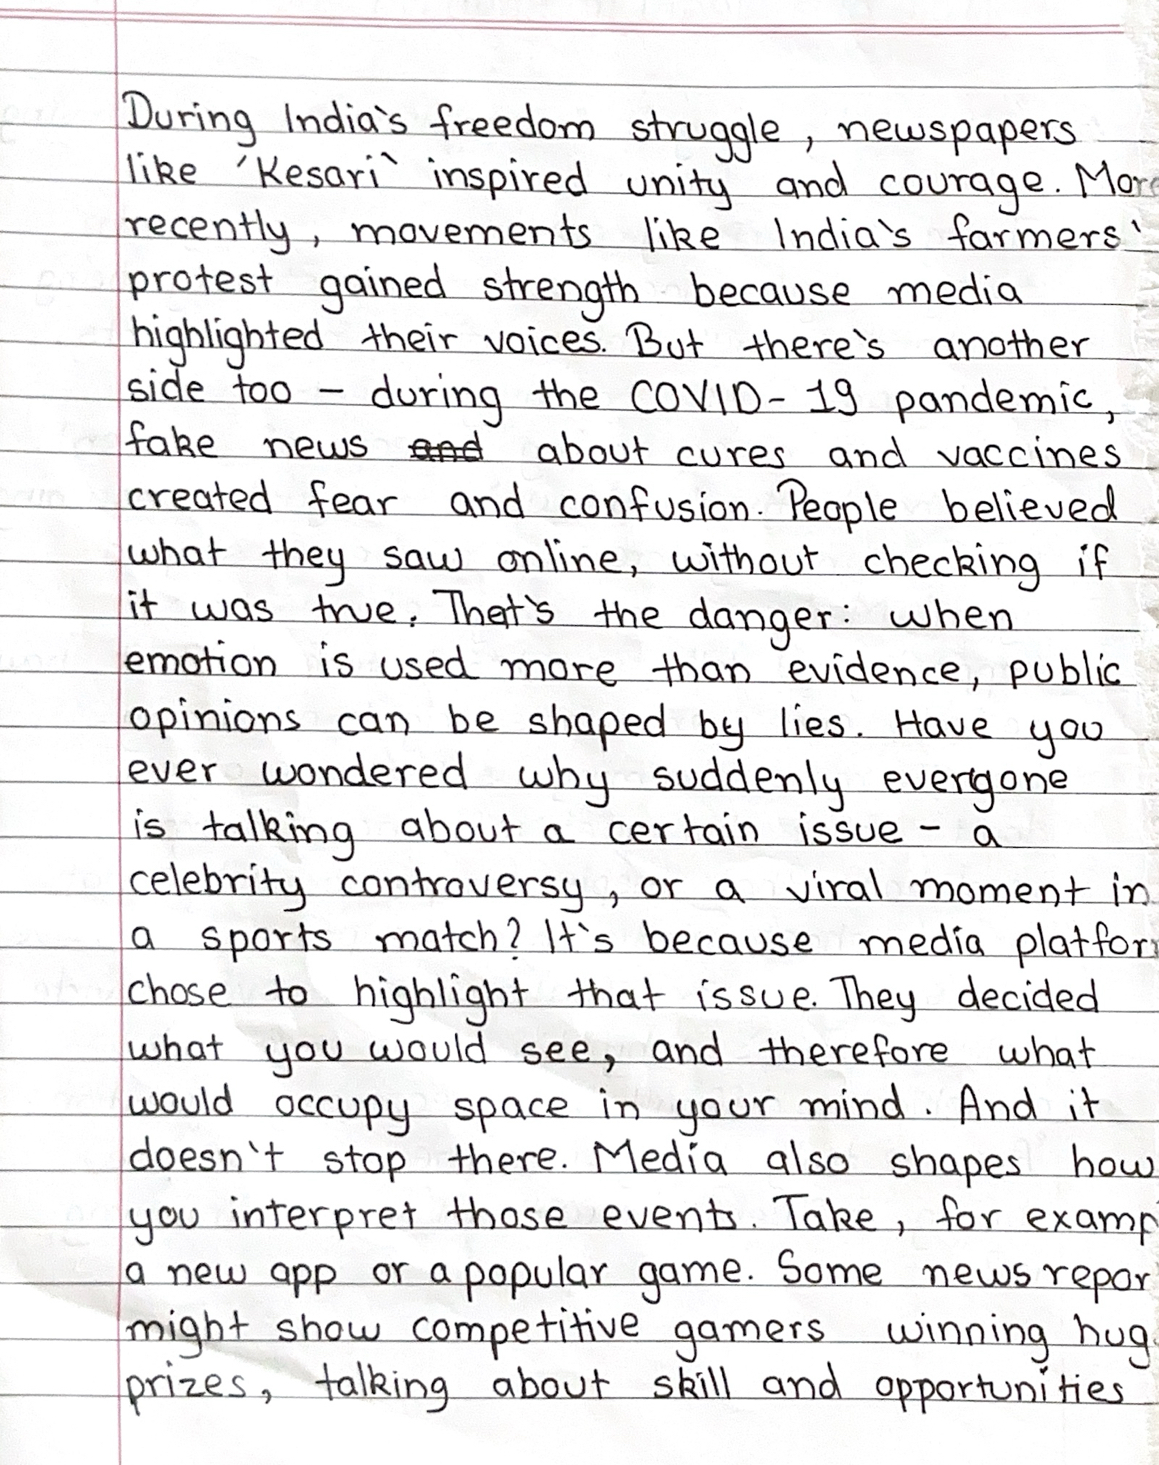 During India's freedom struggle, newspapers
like 'Kesari' inspired unity and courage. More
recently, movements like India's farmers'
protest gained strength because media
highlighted their voices. But there's another
side too - during the COVID-19 pandemic,
fake news and about cures and vaccines
created fear and confusion. People believed
what they saw online, without checking if
it was true. That's the danger: when
emotion is used more than evidence, public
opinions can be shaped by lies. Have you
ever wondered why suddenly everyone
is talking about a certain issue - a
celebrity controversy, or a viral moment in
a sports match? It's because media platfor
chose to highlight that issue. They decided
what you would see, and therefore what
would occupy space in your mind. And it
doesn't stop there. Media also shapes how
you interpret those events. Take, for examp
a new app or a popular game. Some news repor
might show competitive gamers winning hug
prizes, talking about skill and opportunities